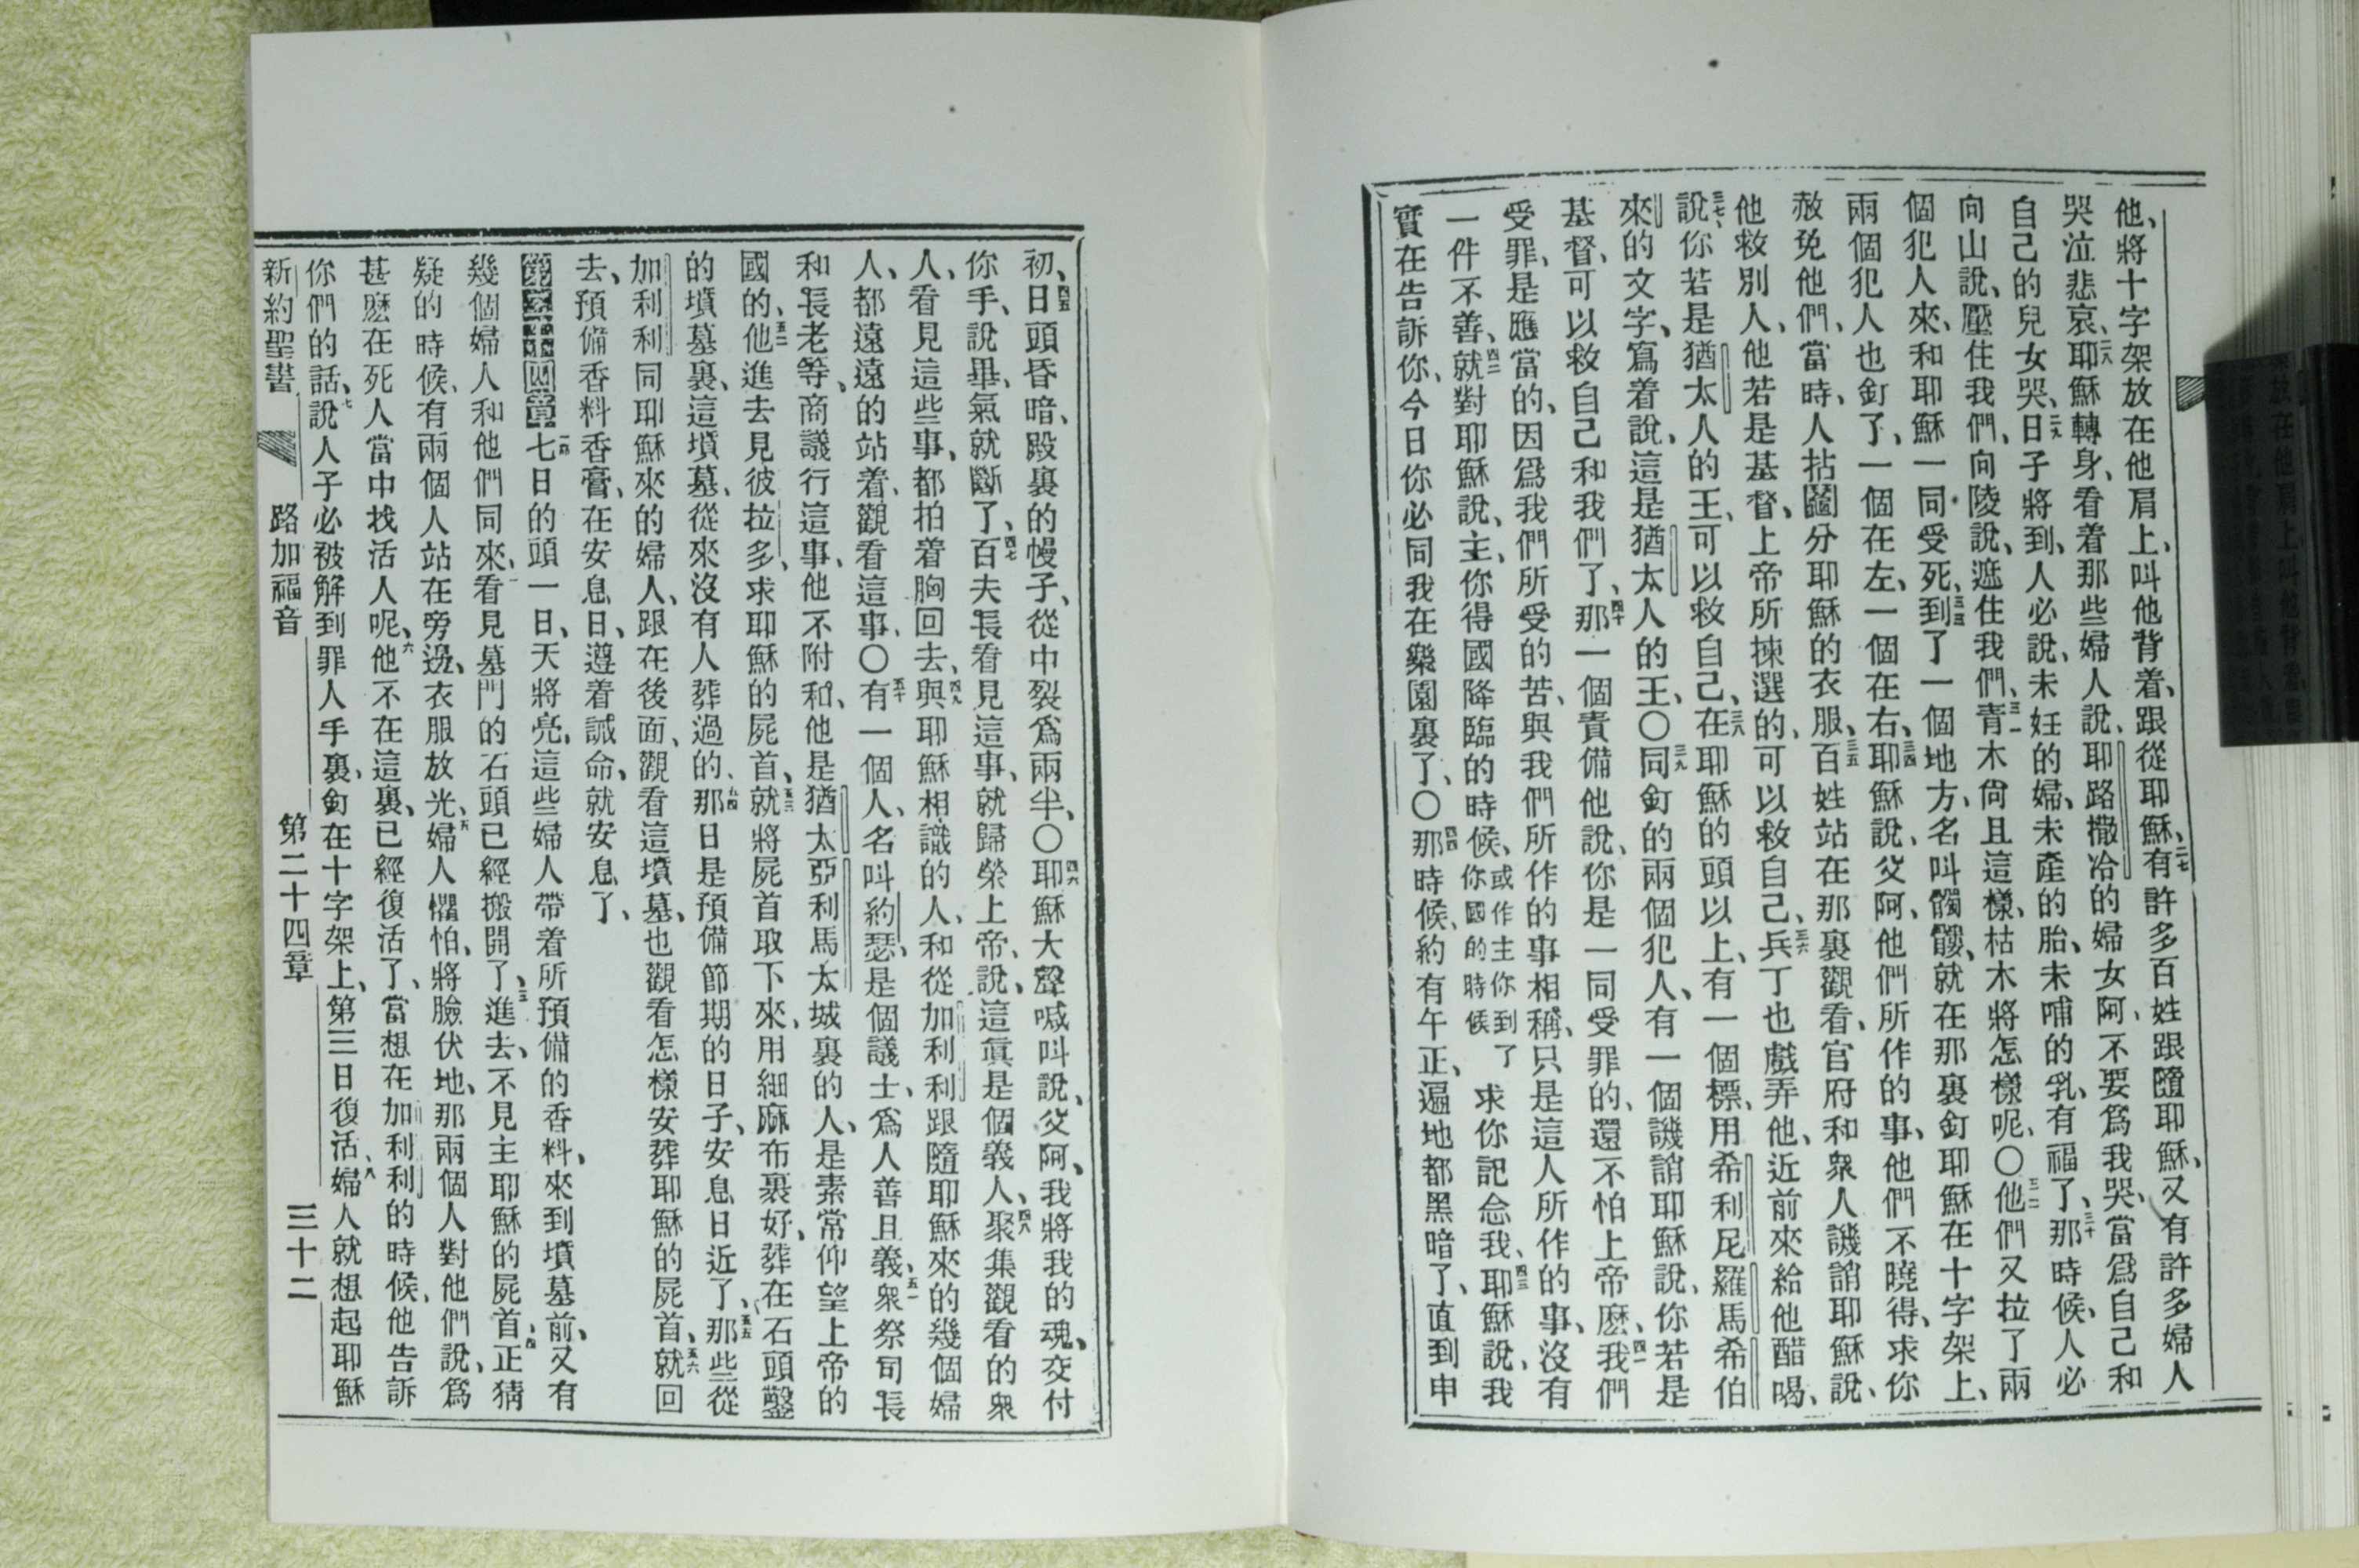 他、將十字架放在他肩上、叫他背着、跟從耶穌、二七有許多百姓跟隨耶穌、又有許多婦人
哭泣悲哀、二八耶穌轉身、看着那些婦人說、耶路撒冷的婦女阿、不要爲我哭、當爲自己和
自己的兒女哭、二九日子將到、人必說、未妊的婦、未產的胎、未哺的乳、有福了、三十那時候、人必
向山說、壓住我們、向陵說、遮住我們、三一青木尙且這樣、枯木將怎樣呢、〇三二他們又拉了兩
個犯人來、和耶穌一同受死、三三到了一個地方、名叫髑髏、就在那裏釘耶穌在十字架上、
兩個犯人也釘了、一個在左、一個在右、三四耶穌說、父阿、他們所作的事、他們不曉得、求你
赦免他們、當時、人拈鬮分耶穌的衣服、三五百姓站在那裏觀看、官府和衆人譏誚耶穌說、
他救別人、他若是基督、上帝所揀選的、可以救自己、三六兵丁也戲弄他、近前來給他醋喝、
三七說、你若是猶太人的王、可以救自己、三八在耶穌的頭以上、有一個標、用希利尼羅馬希伯
來的文字、寫着說、這是猶太人的王〇三九同釘的兩個犯人、有一個譏誚耶穌說、你若是
基督、可以救自己和我們了、四十那一個責備他說、你是一同受罪的、還不怕上帝麽、四一我們
受罪、是應當的、因爲我們所受的苦、與我們所作的事相稱、只是這人所作的事、沒有
一件不善、四二就對耶穌說、主、你得國降臨的時候、或作主你到了你國的時候求你記念我、四三耶穌說、我
實在告訴你、今日你必同我在樂園裏了、〇四四那時候、約有午正、遍地都黑暗了、直到申
初、四五日頭昏暗、殿裏的幔子、從中裂爲兩半、〇四六耶穌大聲喊叫說、父阿、我將我的魂、交付
你手、說畢、氣就斷了、四七百夫長看見這事、就歸榮上帝、說、這眞是個義人、四八聚集觀看的衆
人、看見這些事、都拍着胸回去、四九與耶穌相識的人、和從加利利跟隨耶穌來的幾個婦
人、都遠遠的站着、觀看這事、〇五十有一個人、名叫約瑟、是個議士、爲人善且義、五一衆祭司長
和長老等、商議行這事、他不附和、他是猶太亞利馬太城裏的人、是素常仰望上帝的
國的、五二他進去見彼拉多、求耶穌的屍首、五三就將屍首取下來、用細麻布裹好、葬在石頭鑿
的墳墓裏、這墳墓、從來沒有人葬過的、五四那日是預備節期的日子、安息日近了、五五那些從
加利利同耶穌來的婦人、跟在後面、觀看這墳墓、也觀看怎樣安葬耶穌的屍首、五六就回
去、預備香料香膏、在安息日、遵着誡命、就安息了、
第二十四章一七日的頭一日、天將亮、這些婦人帶着所預備的香料、來到墳墓前、又有
幾個婦人和他們同來、二看見墓門的石頭已經搬開了、三進去、不見主耶穌的屍首、四正猜
疑的時候、有兩個人站在旁邊、衣服放光、五婦人懼怕、將臉伏地、那兩個人對他們說、爲
甚麽在死人當中找活人呢、六他不在這裏、已經復活了、當想在加利利的時候、他告訴
你們的話、七說、人子必被解到罪人手裏、釘在十字架上、第三日復活、八婦人就想起耶穌
新約聖書 路加福音 第二十四章 三十二